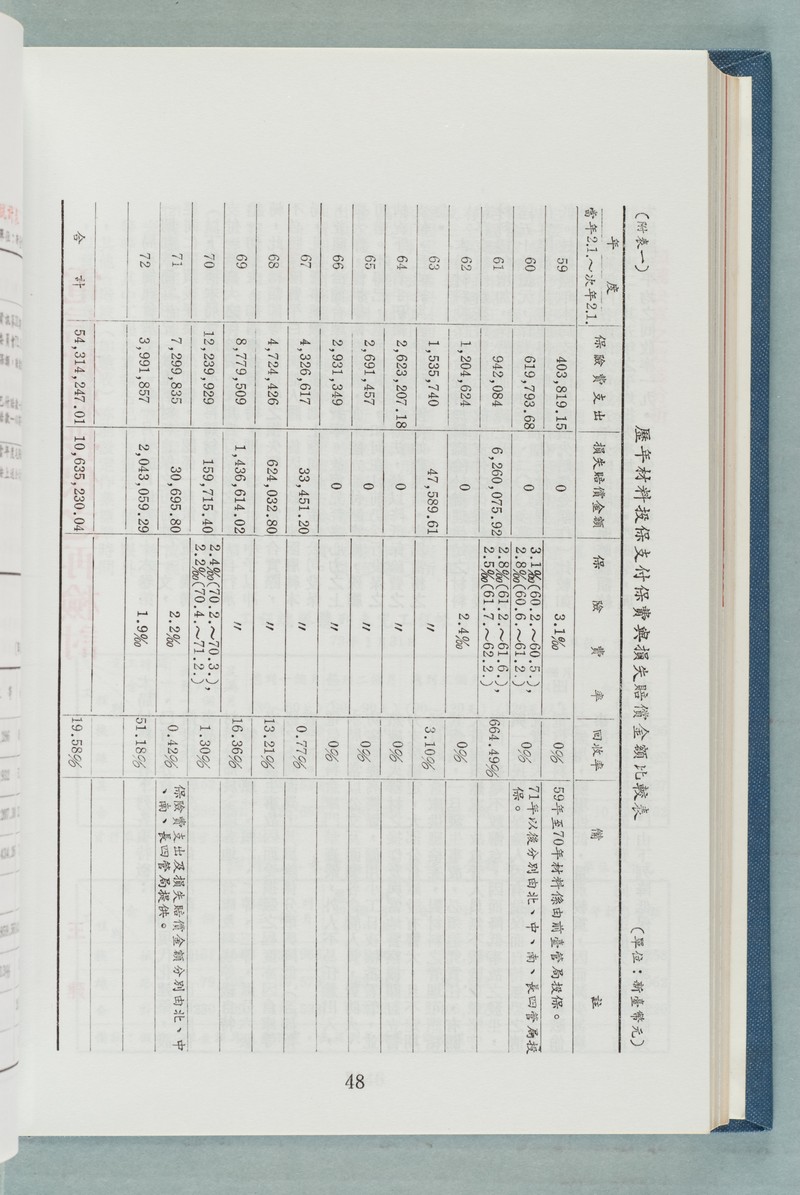 (附表一)
歷年材料投保支付保費與損失賠償金額比較表
(單位：新臺幣元)
年度 當年2.1.～次年2.1. 保險費支出 損失賠償金額 保險費率 回收率 備註
59 403,819.15 0 3.1‰ 0% 59年至70年材料係由前臺管局投保。
60 619,793.68 0 3.1‰(60.2.～60.5.), 2.8‰(60.6.～61.2.) 0% 71年以後分別由北、中、南、長四管局投保。
61 942,084 6,260,075.92 2.8‰(61.2.～61.6.), 2.5‰(61.7.～62.2.) 664.49%
62 1,204,624 0 2.4‰ 0%
63 1,535,740 47,589.61 〃 3.10%
64 2,623,207.18 0 〃 0%
65 2,691,457 0 〃 0%
66 2,931,349 0 〃 0%
67 4,326,617 33,451.20 〃 0.77%
68 4,724,426 624,032.80 〃 13.21%
69 8,779,509 1,436,614.02 〃 16.36%
70 12,239,929 159,715.40 2.4‰(70.2.～70.3.), 2.2‰(70.4.～71.2.) 1.30%
71 7,299,835 30,695.80 2.2‰ 0.42% 保險費支出及損失賠償金額分別由北、中、南、長四管局提供。
72 3,991,857 2,043,059.29 1.9‰ 51.18%
合計 54,314,247.01 10,635,230.04 19.58%
48